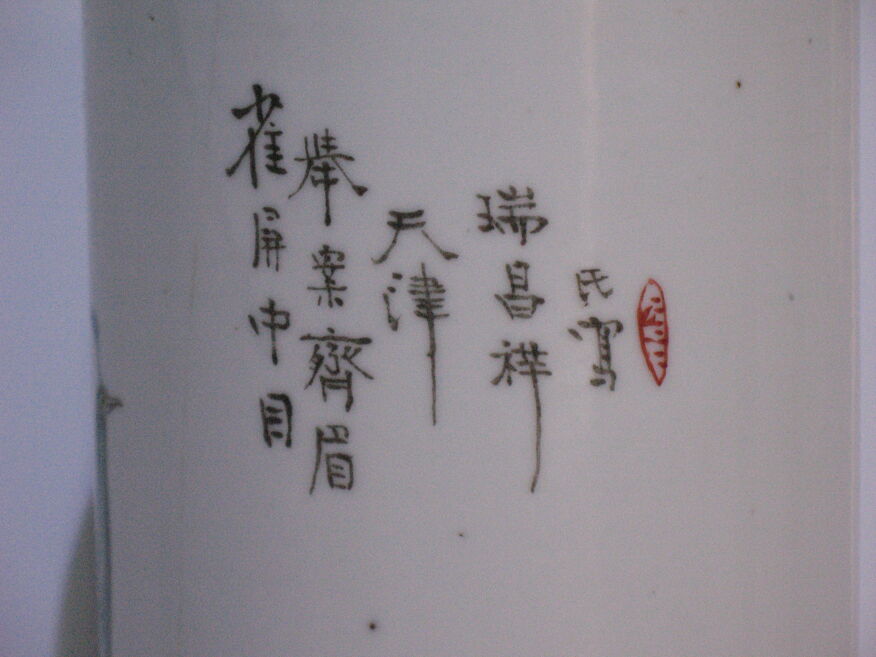 雀屏中目
舉案齊眉
天津
瑞昌祥
氏寫